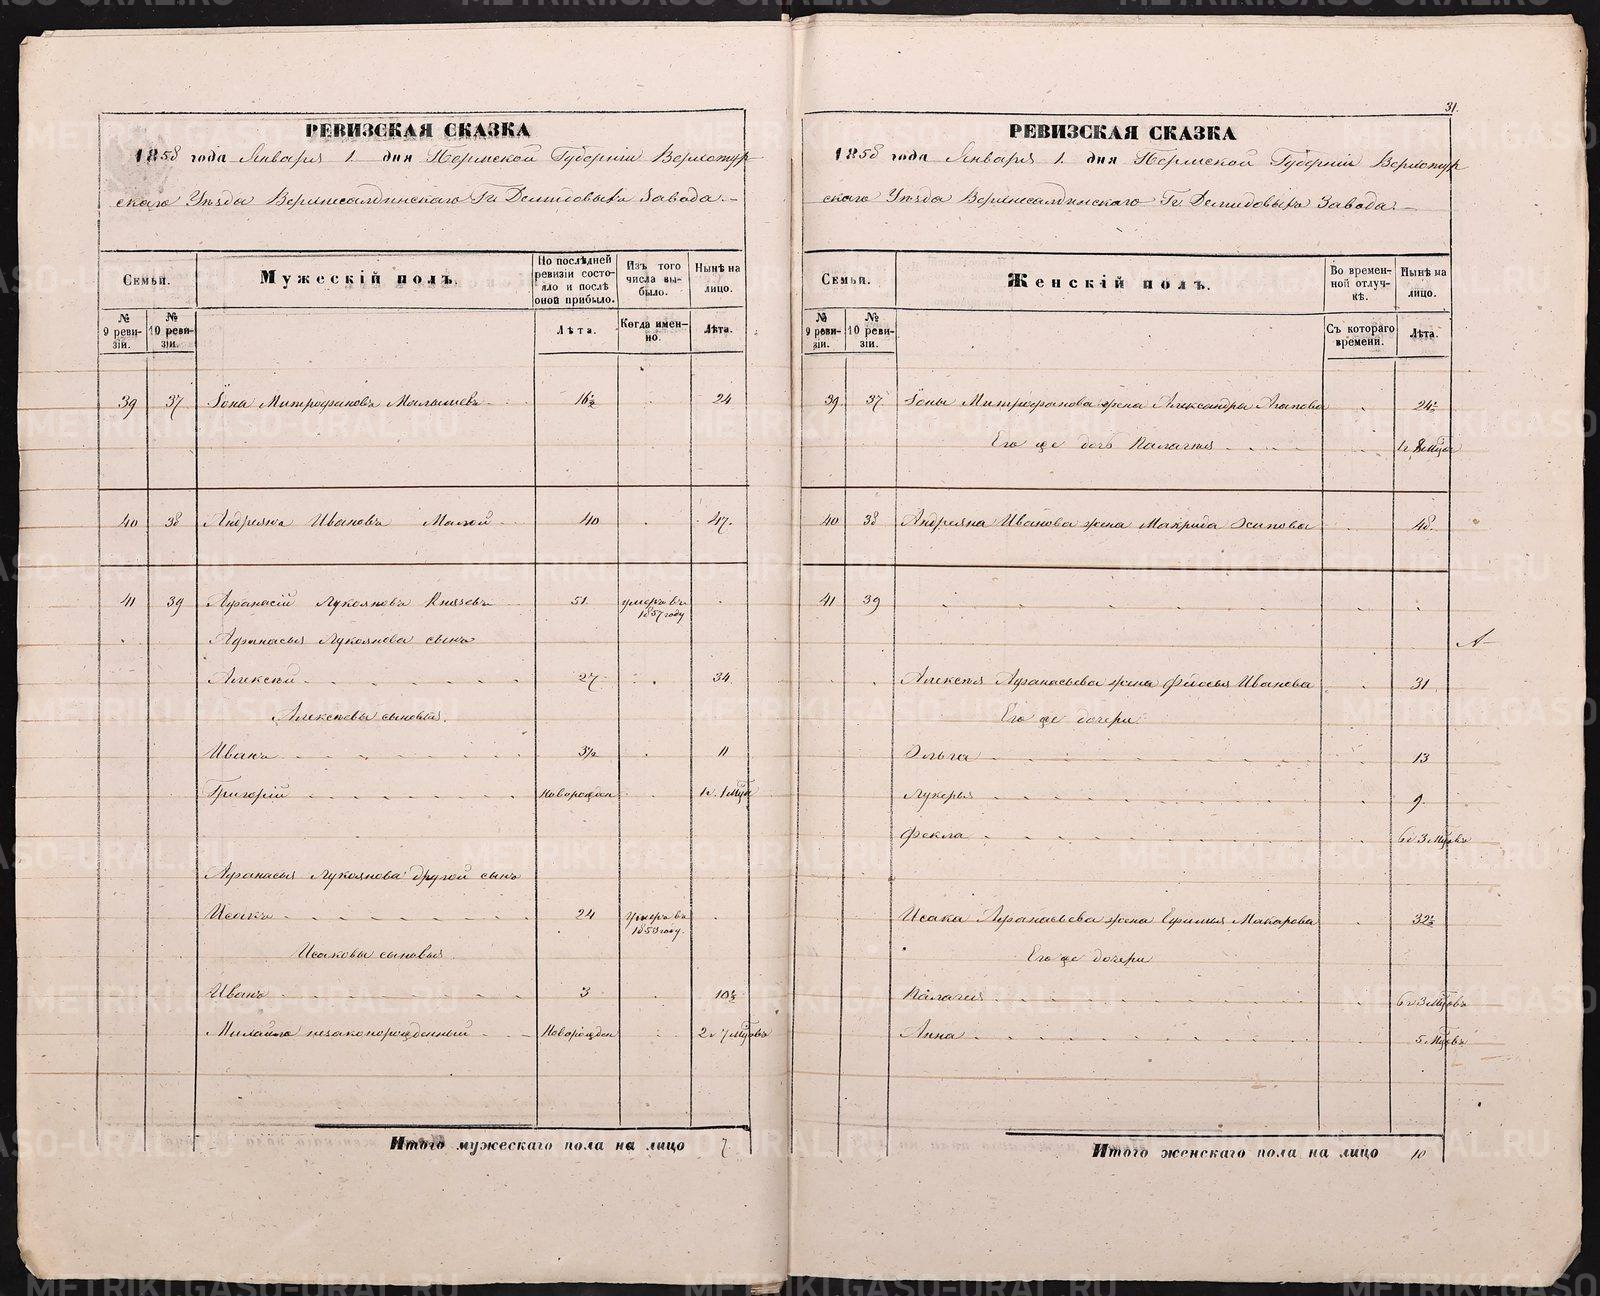 31.
РЕВИЗСКАЯ СКАЗКА
1858 года Января 1 дня Пермской Губерніи Верхотур-
скаго Уѣзда Верхнесалдинскаго Гг. Демидовыхъ Завода.
Семьи.
Мужескій полъ.
По послѣдней ревизіи состояло и послѣ оной прибыло.
Изъ того числа выбыло.
Нынѣ на лицо.
№ 9 ревизіи.
№ 10 ревизіи.
Лѣта.
Когда именно.
Лѣта.
39 37 Іона Митрофановъ Малышевъ 16½ 24
40 38 Андреянъ Ивановъ 40 47.
41 39 Афанасій Лукояновъ Князевъ 51. умеръ въ 1857 году
Афанасья Лукоянова сынъ
Алексѣй 27 34
Алексѣевы сыновья.
Иванъ 3½ 11
Григорій Новорожден 1 г. 1 мѣся
Афанасья Лукоянова другой сынъ
Исакъ 24 умеръ въ 1850 году.
Исаковы сыновья
Иванъ 3 10½
Михайло незаконорожденный Новорожден 2 г 7 мѣсовъ
Итого мужескаго пола на лицо 7
РЕВИЗСКАЯ СКАЗКА
1858 года Января 1. дня Пермской Губерніи Верхотур
скаго Уѣзда Верхнесалдинскаго Гг. Демидовыхъ Завода.
Семьи.
Женскій полъ.
Во временной отлучкѣ.
Нынѣ на лицо.
№ 9 ревизіи.
№ 10 ревизіи.
Съ котораго времени.
Лѣта.
39. 37. Іоны Митрофанова жена Александра Агапова 24½
Его же дочь Палагея 1 г 8 мѣся
40 38 Андреяна Иванова жена Макрида Осипова 48.
41 39
Алексѣя Афанасьева жена Федосья Иванова 31
Его же дочери
Ольга 13
Лукерья 9
Фекла 6 г 3 мѣсовъ
Исака Афанасьева жена Ефимья Макарова 32½
Его же дочери
Палагея 6 г 3 мѣсовъ
Анна 5 мѣсовъ
Итого женскаго пола на лицо 10
METRIKI.GASO-URAL.RU